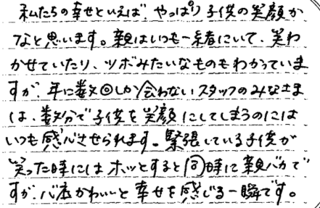 私たちの幸せといえば、やっぱり子供の笑顔か
なと思います。親はいつも一緒にいて、笑わ
かせていたり、ツボみたいなものもわかっていま
すが、年に数回しか会わないスタッフのみなさま
は、数分で子供を笑顔にしてしまうのには
いつも感心させられます。緊張している子供が
笑った時にはホッとすると同時に親バカで
すが、バ本かわいいと幸せを感じる一瞬です。